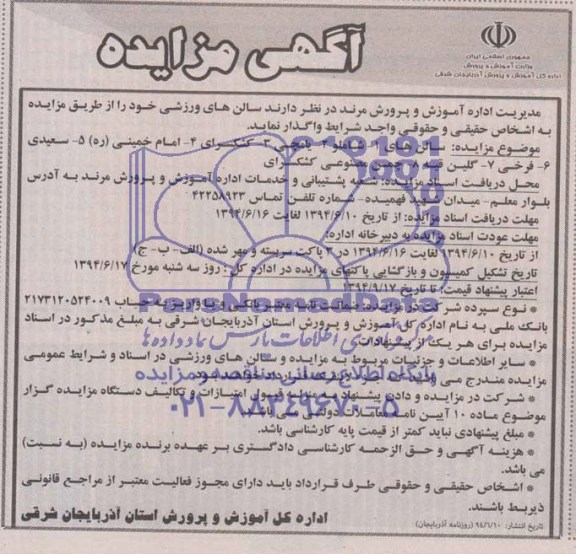 جمهوری اسلامی ایران
وزارت آموزش و پرورش
اداره کل آموزش و پرورش آذربایجان شرقی
آگهی مزایده
مدیریت اداره آموزش و پرورش مرند در نظر دارند سالن های ورزشی خود را از طریق مزایده
به اشخاص حقیقی و حقوقی واجد شرایط واگذار نماید.
موضوع مزایده: سالن های ۱- شاملو ۲- یامچی ۳- کشکسرای ۴- امام خمینی (ره) ۵- سعیدی
۶- فرخی ۷- گلین قیه ۸- چمن مصنوعی کشکسرای
محل دریافت اسناد مزایده: شعبه پشتیبانی و خدمات اداره آموزش و پرورش مرند به آدرس
بلوار معلم- میدان شهید فهمیده- شماره تلفن تماس ۴۲۲۵۸۹۲۳
مهلت دریافت اسناد مزایده: از تاریخ ۱۳۹۴/۶/۱۰ لغایت ۱۳۹۴/۶/۱۶
مهلت عودت اسناد مزایده به دبیرخانه اداره:
از تاریخ ۱۳۹۴/۶/۱۰ لغایت ۱۳۹۴/۶/۱۶ در ۳ پاکت سربسته و مهر شده (الف- ب- ج)
تاریخ تشکیل کمیسیون و بازگشایی پاکتهای مزایده در اداره کل: روز سه شنبه مورخ ۱۳۹۴/۶/۱۷
اعتبار پیشنهاد قیمت: تا تاریخ ۱۳۹۴/۹/۱۷
* نوع سپرده شرکت در مزایده: ضمانت نامه معتبر بانکی و یا واریز به حساب ۲۱۷۳۱۲۰۵۲۴۰۰۹
بانک ملی به نام اداره کل آموزش و پرورش استان آذربایجان شرقی به مبلغ مذکور در اسناد
مزایده برای هر یک از پیشنهادات
* سایر اطلاعات و جزئیات مربوط به مزایده و سالن های ورزشی در اسناد و شرایط عمومی
مزایده مندرج می
* شرکت در مزایده و دادن پیشنهاد به منزله قبول امتیازات و تکالیف دستگاه مزایده گزار
موضوع ماده ۱۰ آیین نامه معاملات دولتی می باشد.
* مبلغ پیشنهادی نباید کمتر از قیمت پایه کارشناسی باشد.
* هزینه آگهی و حق الزحمه کارشناسی دادگستری بر عهده برنده مزایده (به نسبت)
می باشد.
* اشخاص حقیقی و حقوقی طرف قرارداد باید دارای مجوز فعالیت معتبر از مراجع قانونی
ذیربط باشند.
اداره کل آموزش و پرورش استان آذربایجان شرقی
تاریخ انتشار: ۹۴/۶/۱۰ (روزنامه آذربایجان)
ParsNamadData
پایگاه اطلاع رسانی مناقصه و مزایده
۰۲۱-۸۸۳۴۹۶۷۰-۵